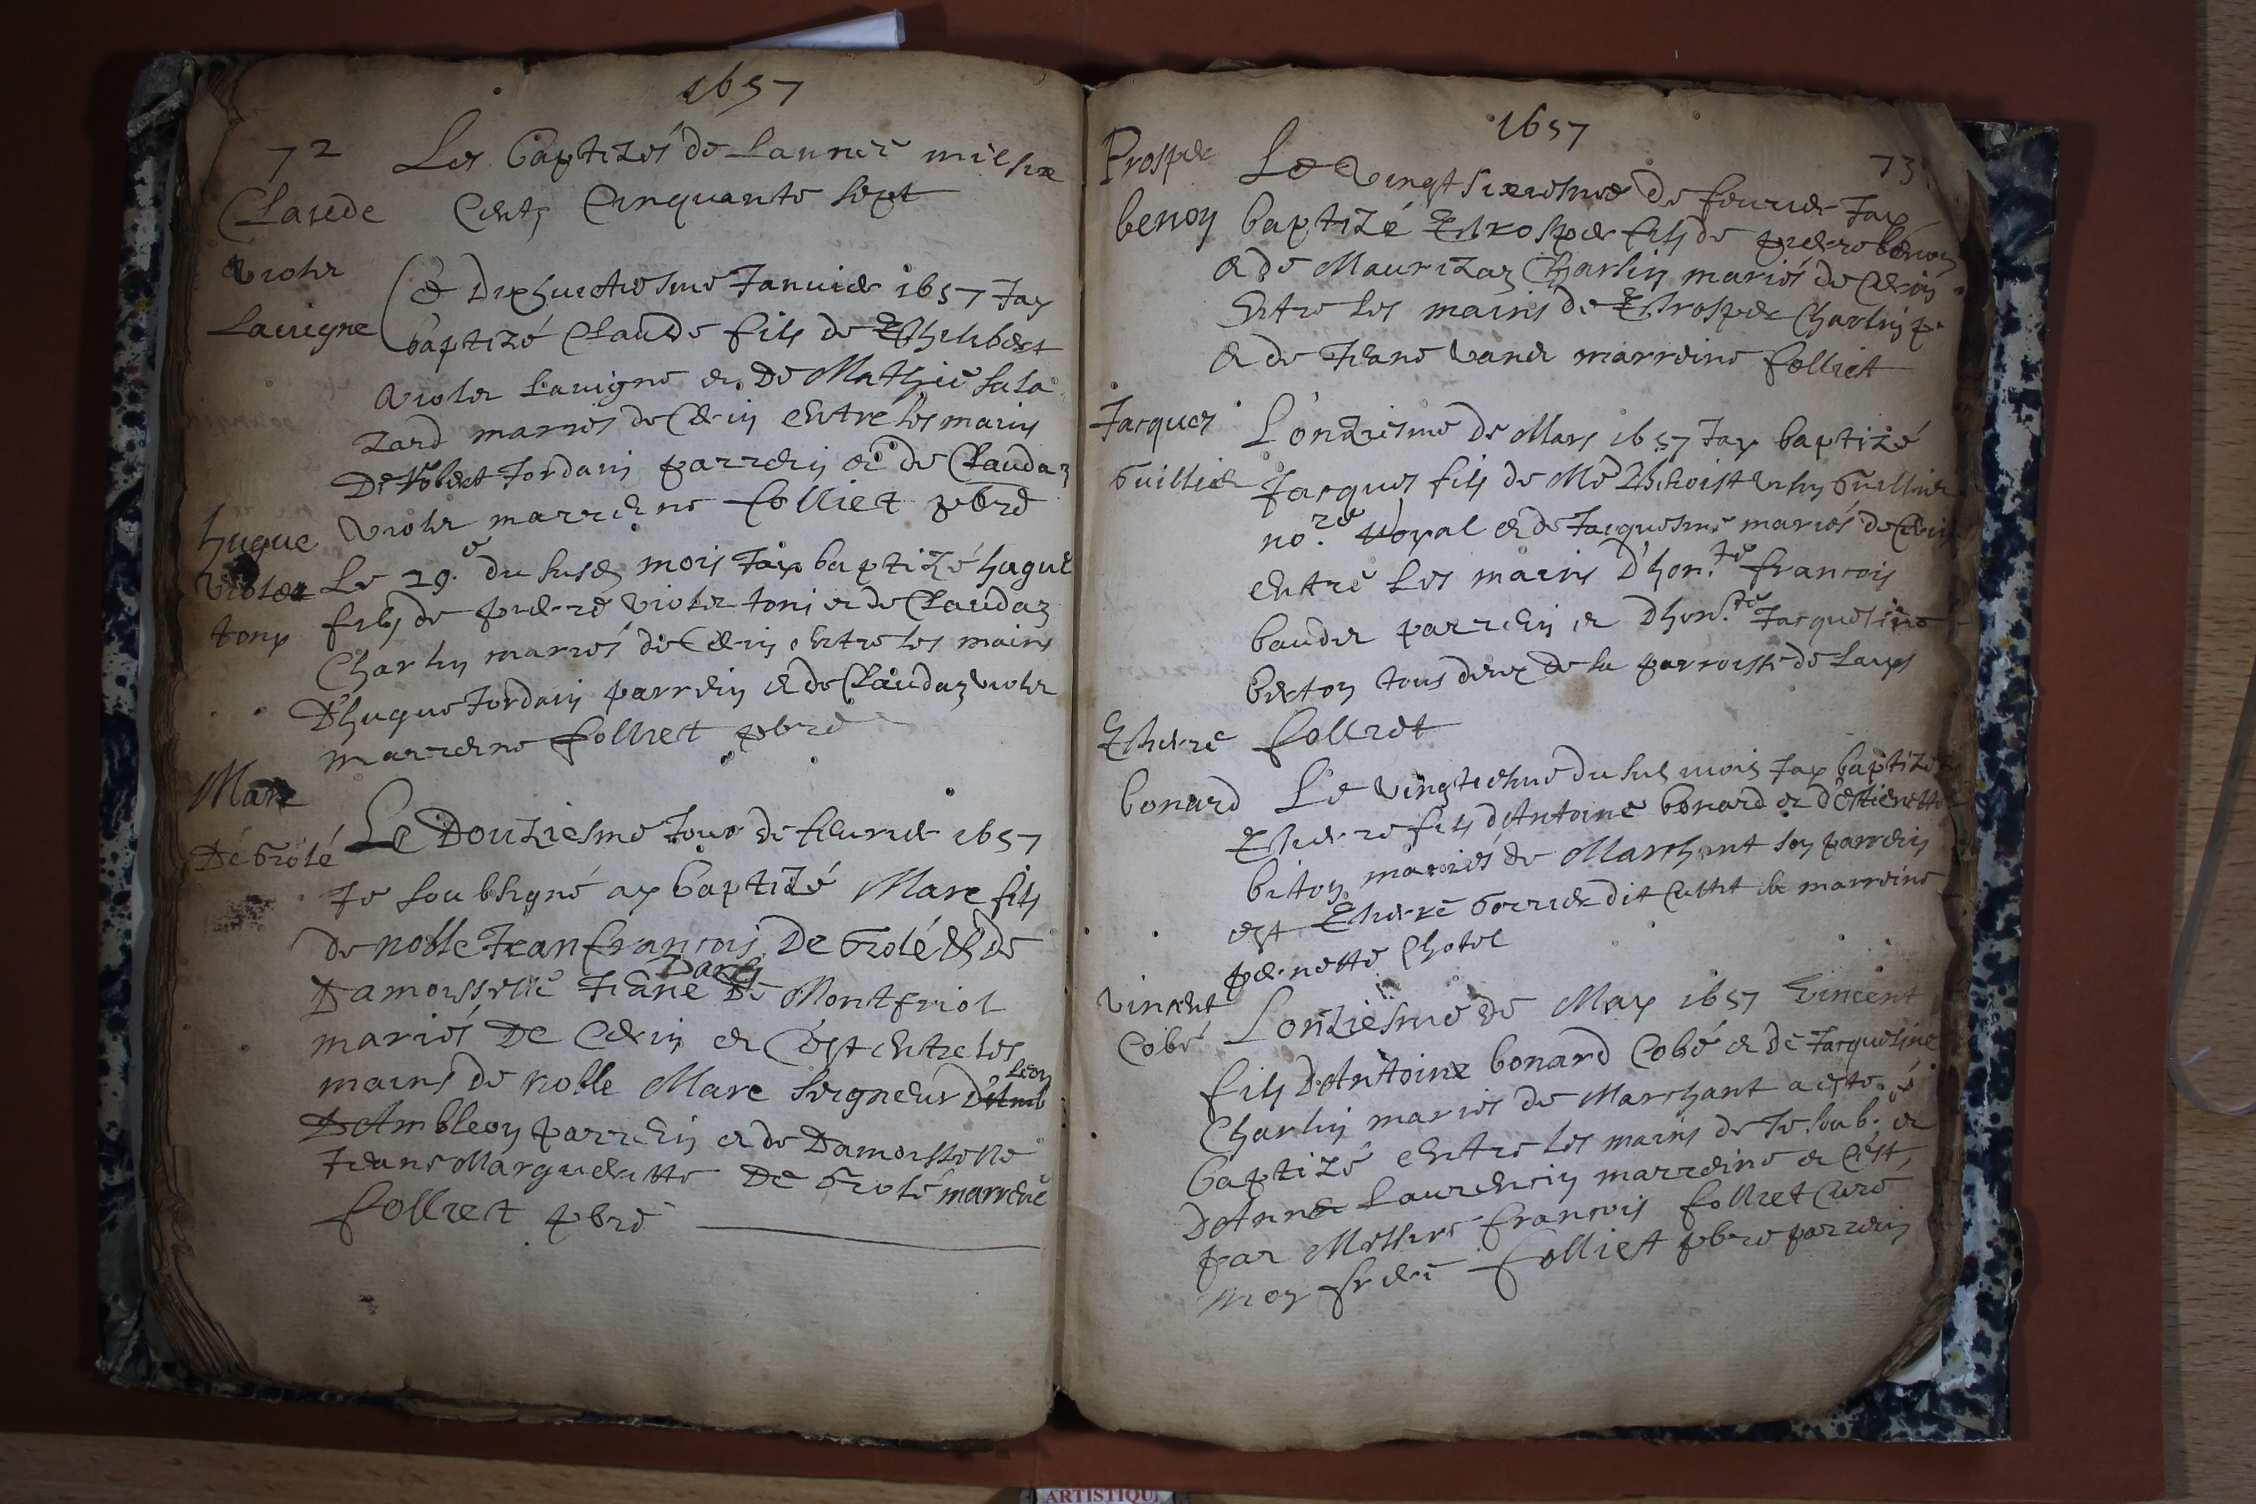 1657
72
Les Baptizés de Lannee mil six
Cents Cinquante sept
Claude
violet
Lauigne
Le Dixhuictiesme Januier 1657 Jay
baptizé Claude fils de Philibert
violet Lauigne et de Mathie Sala
zard mariés de Cerin entre les mains
De Robert Jordain parrein et de Claudaz
violet marreine Colliet pbre
hugue
violet
tony
Le 29.e du susd mois Jay baptizé hugue
fils de pierre violet toni et de Claudaz
Charlin mariés de Cerin entre les mains
D'hugue Jordain parrein et de Claudaz violet
marreine Folliet pbre
Marc
De Grolé
Le Douziesme Jour de feurier 1657
Je soubsigné ay baptizé Marc fils
de noble Jean françois De Grolé et de
Damoiselle Jeane De Montfriol
mariés De Cerin et C'est entre les
mains de noble Marc seigneur
D'Ambleon parrein et de Damoiselle
Jeane Margueritte De Grolé marreine
folliet pbre
1657
73
Prosper
benoy
Le Vingt sixiesme de feurier Jay
baptizé Prosper fils de pierre benoy
et de Maurizaz Charlin mariés de Cerin
Entre les mains de Prosper Charlin p.
et de Jeane marreine folliet
Jacques
Guillier
L'onziesme de Mars 1657 Jay baptizé
Jacques fils de Me Guillier
no.re Royal et de Jacquesme mariés de Cerin
entre les mains D'hon.te francois
baudet parrein et Dhon.te Jacquesine
berton tous deux de la parroisse de Lays
folliet
Pierre
bonard
Le vingtiesme du sus mois Jay baptizé
Pierre fils d'Antoine bonard et d'Estienette
biton mariés de Marchant son parrein
est Pierre Gorrier dit la marreine
pernette Chotel
vincent
Cobé
L'onziesme de May 1657 Vincent
fils D'Antoine bonard Cobé et de Jacquesine
Charlin mariés de Marchant a esté
baptizé entre les mains de Je soub. et
D'Anne Laurencin marreine et C'est
par Messire François folliet Curé
moy frere folliet pbre parrein
ARTISTIQU